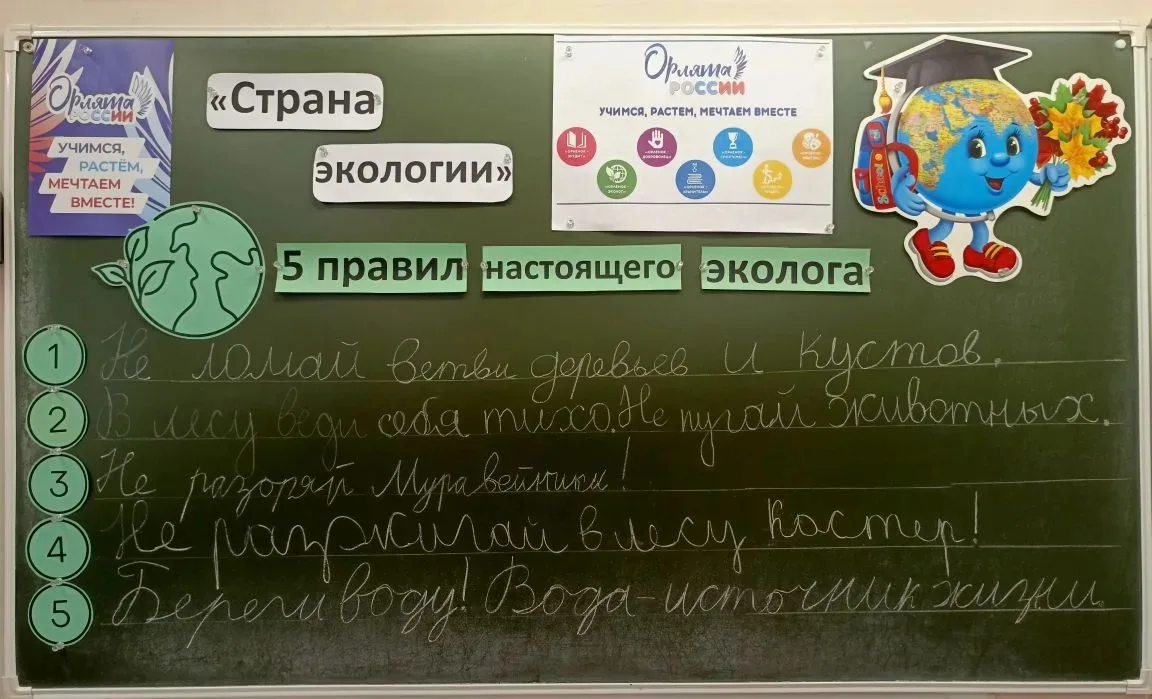 Орлята
РОССИИ
УЧИМСЯ,
РАСТЁМ,
МЕЧТАЕМ
ВМЕСТЕ!
«Страна
экологии»
Орлята
РОССИИ
УЧИМСЯ, РАСТЕМ, МЕЧТАЕМ ВМЕСТЕ
SCHOOL
5 правил настоящего эколога
1 Не ломай ветви деревьев и кустов.
2 В лесу веди себя тихо. Не пугай животных.
3 Не разоряй Муравейники!
4 Не разжигай в лесу костер!
5 Береги воду! Вода - источник жизни.